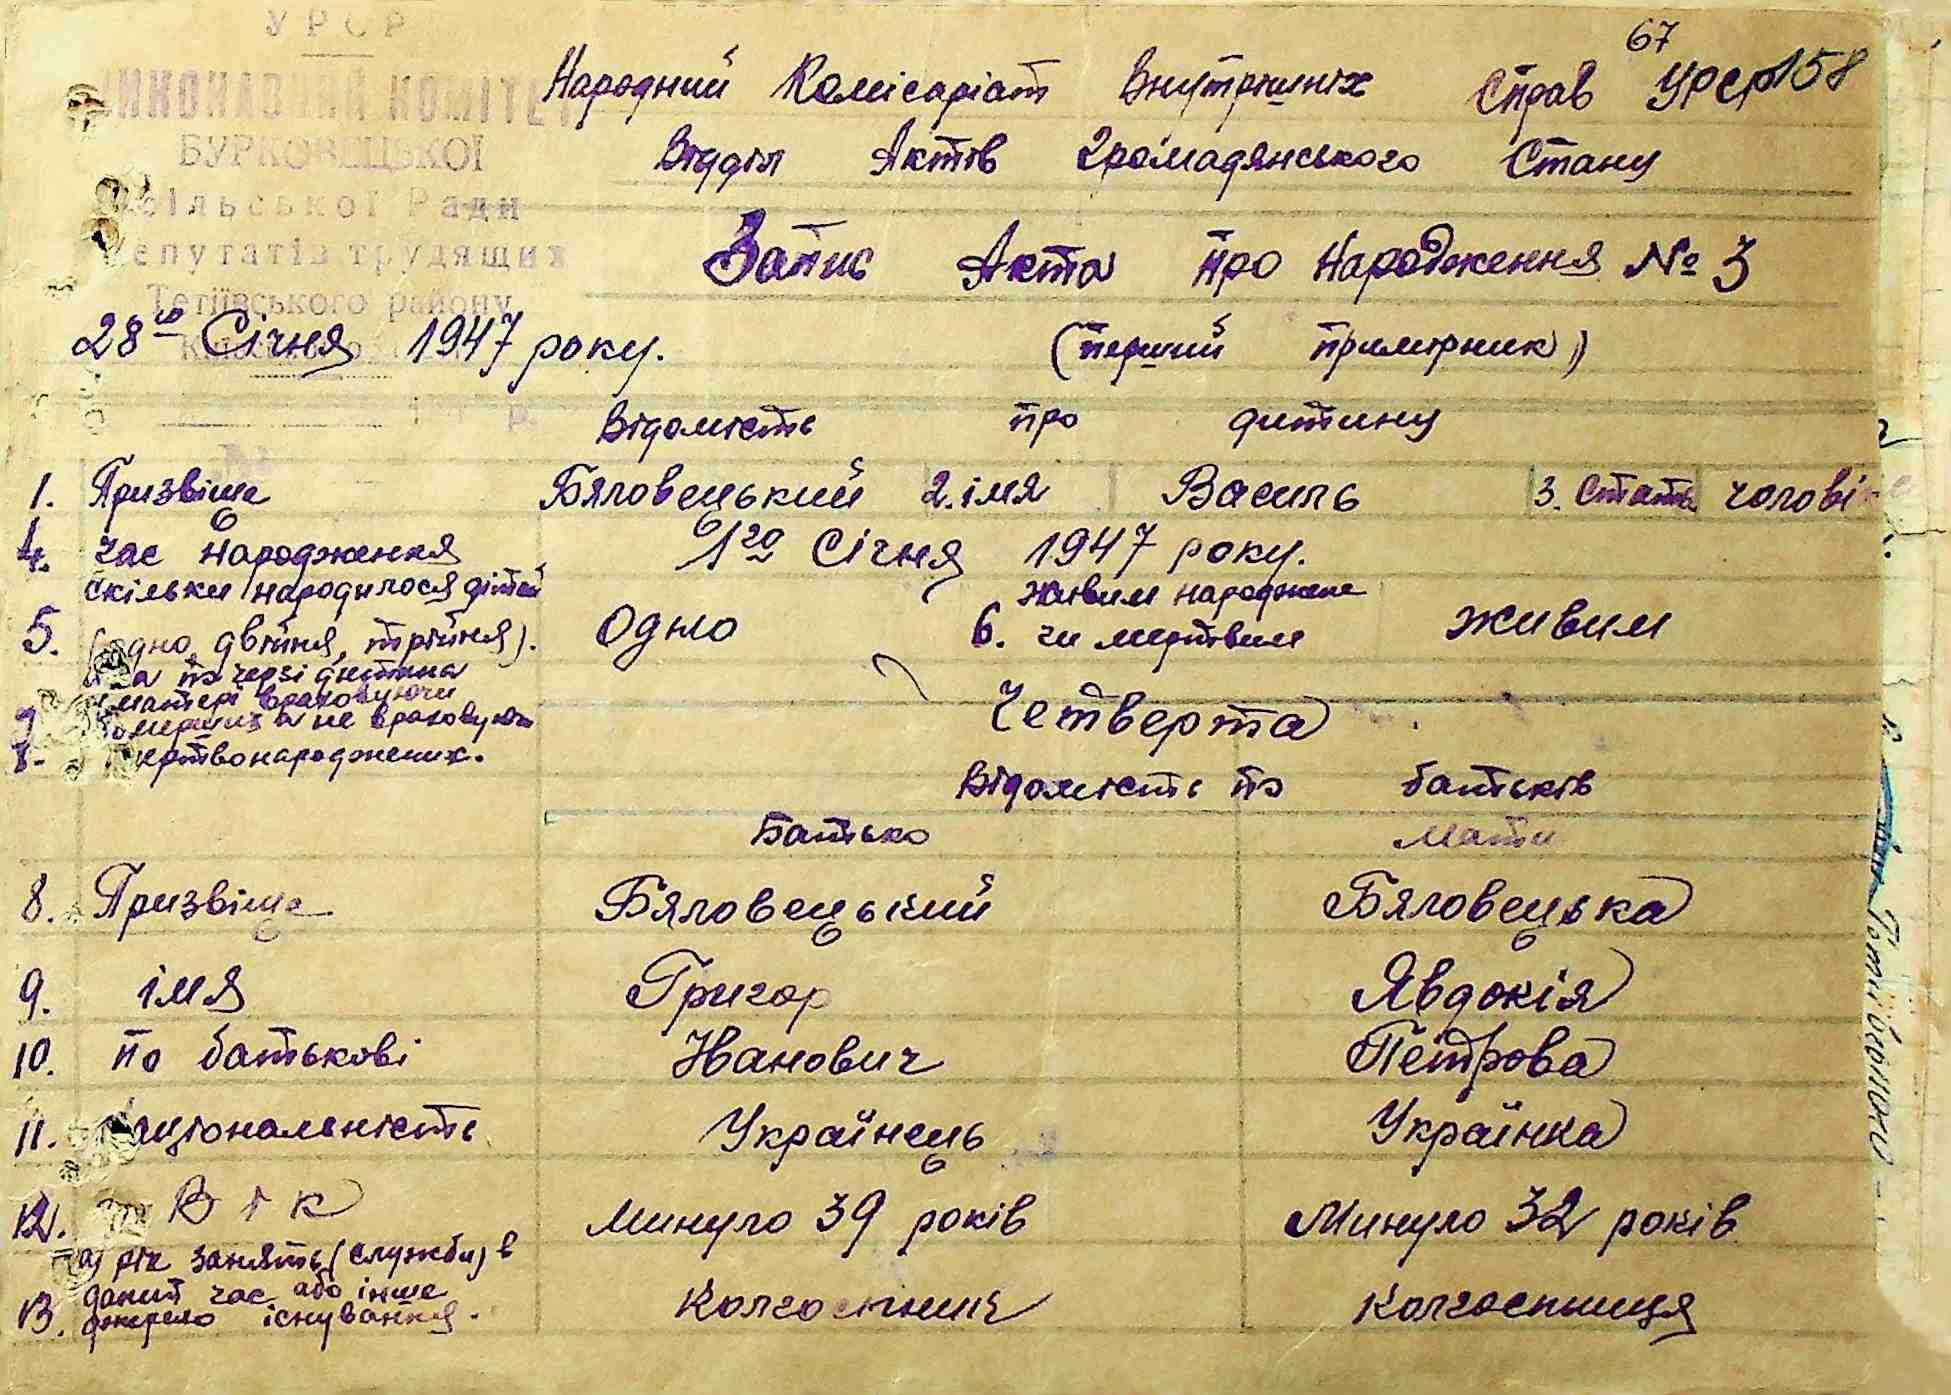 67
УРСР
ВИКОНАВЧИЙ КОМІТЕТ
БУРКОВЕЦЬКОЇ
Сільської Ради
Депутатів трудящих
Тетіївського району
Народний Комісаріат Внутрішніх Справ УРСР 158
Відділ Актів Громадянського Стану
Запис Акта про Народження № 3
28го Січня 1947 року. (перший примірник)
Відомість про дитину
1. Призвіще Бяловецький 2. імя Василь 3. Стать чолові
4. час народження 1го Січня 1947 року.
5. скільки народилося дітей (одно, двійня, трійня). Одно 6. живим народжене чи мертвим живим
по черзі дитина
матері враховуючи
померших а не враховуючи
мертвонароджених. Четверта
Відомість по батьків
Батько Мати
8. Призвіще Бяловецький Бяловецька
9. імя Григор Явдокія
10. по батькові Іванович Петрова
11. Національність Українець Українка
12. Вік Минуло 39 років Минуло 32 років
13. рік занять (служби) в даний час або інше джерело існування. Колгоспник Колгоспниця